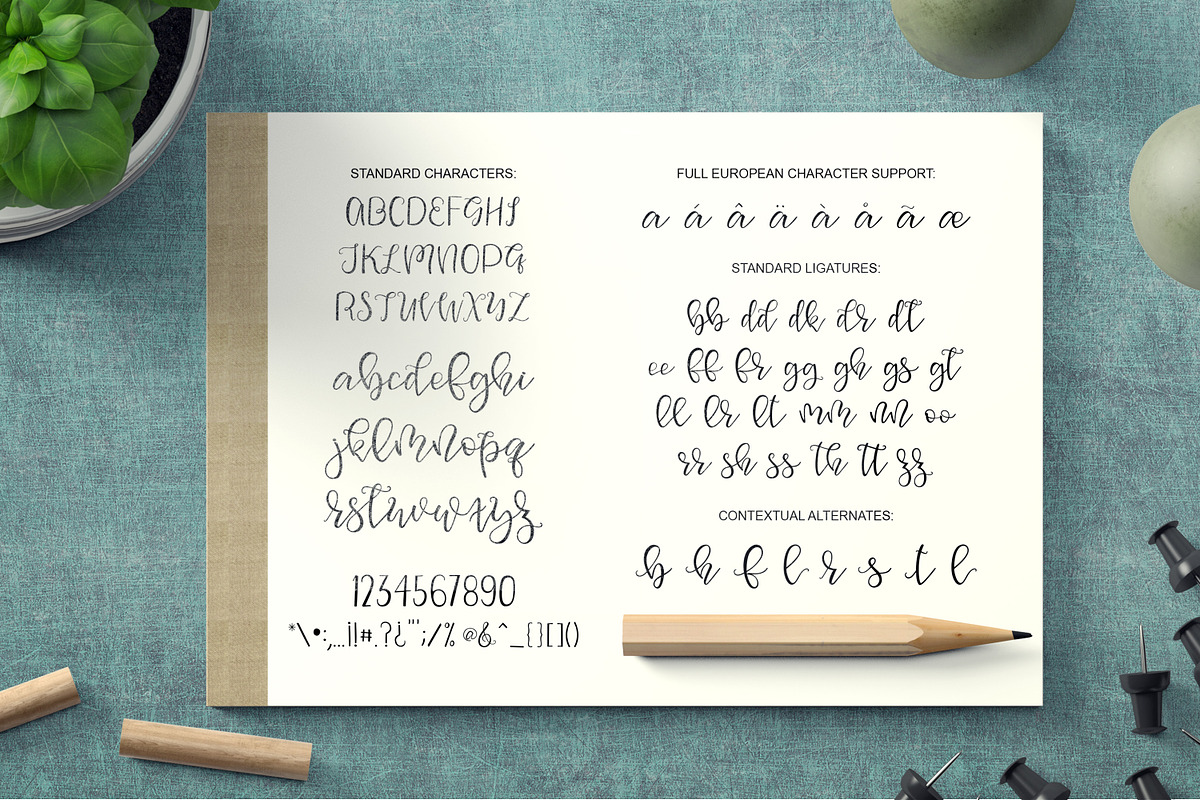 STANDARD CHARACTERS:
ABCDEFGHI
JKLMNOPQ
RSTUVWXYZ
abcdefghi
jklmnopq
rstuvwxyz
1234567890
*\•:,...¡!#.?¿"';/%@&^_{}[]()
FULL EUROPEAN CHARACTER SUPPORT:
a á â ä à å ã æ
STANDARD LIGATURES:
bb dd dk dr dt
ee ff fr gg gh gs gt
ll lr lt mm nn oo
rr sh ss th tt zz
CONTEXTUAL ALTERNATES:
b h f l r s t l